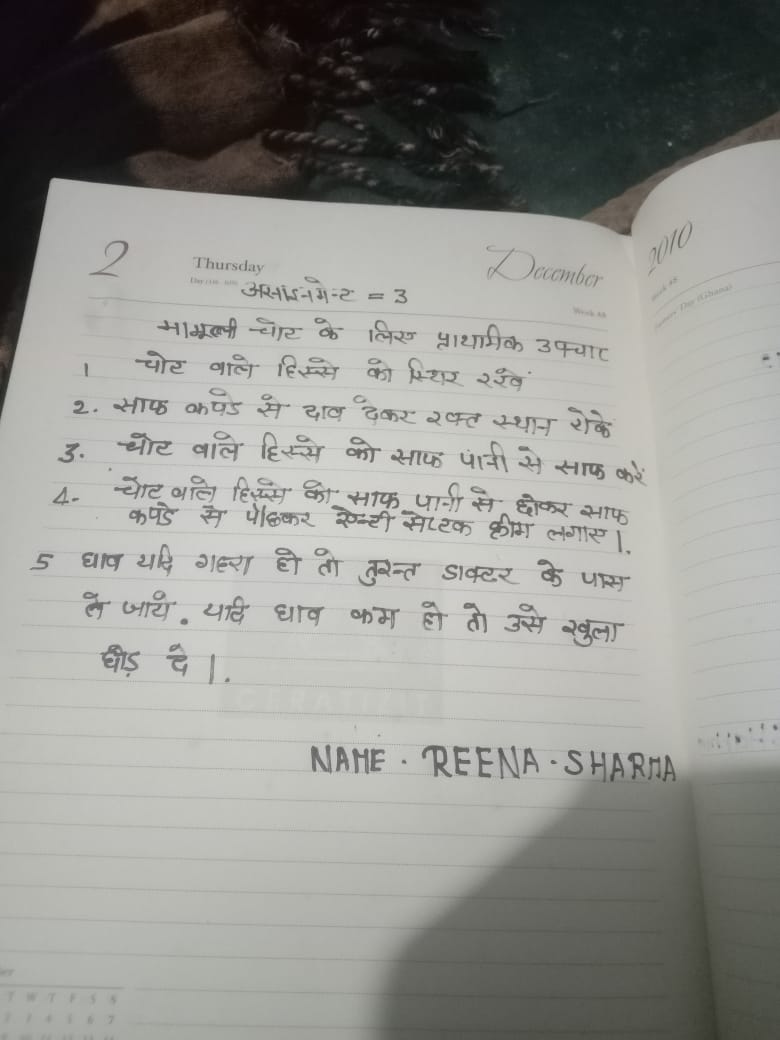 2
Thursday
December
2010
Week 48
असाइनमेन्ट = 3
मामूली चोट के लिए प्राथमिक उपचार
1 चोट वाले हिस्से को स्थिर रखें
2. साफ कपडे से दाब देकर रक्त स्थान रोके
3. चोट वाले हिस्से को साफ पानी से साफ करें
4. चोट वाले हिस्से को साफ पानी से धोकर साफ
कपडे से पोछकर एन्टी सेप्टिक क्रीम लगाए।.
5 घाव यदि गहरा हो तो तुरन्त डाक्टर के पास
ले जाये. यदि घाव कम हो तो उसे खुला
छोड़ दे।.
CERATIZIT
NAME. REENA. SHARMA
T W T F S S